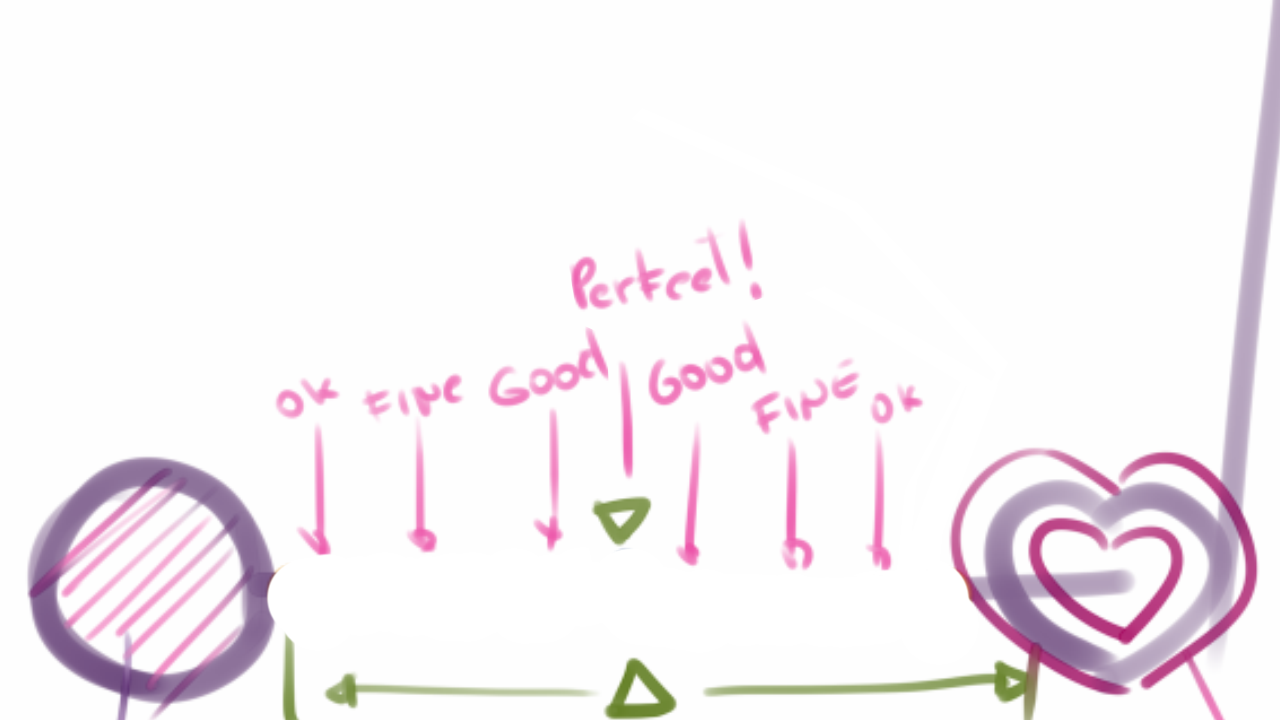 Perfect!
OK FINE Good Good FINE OK